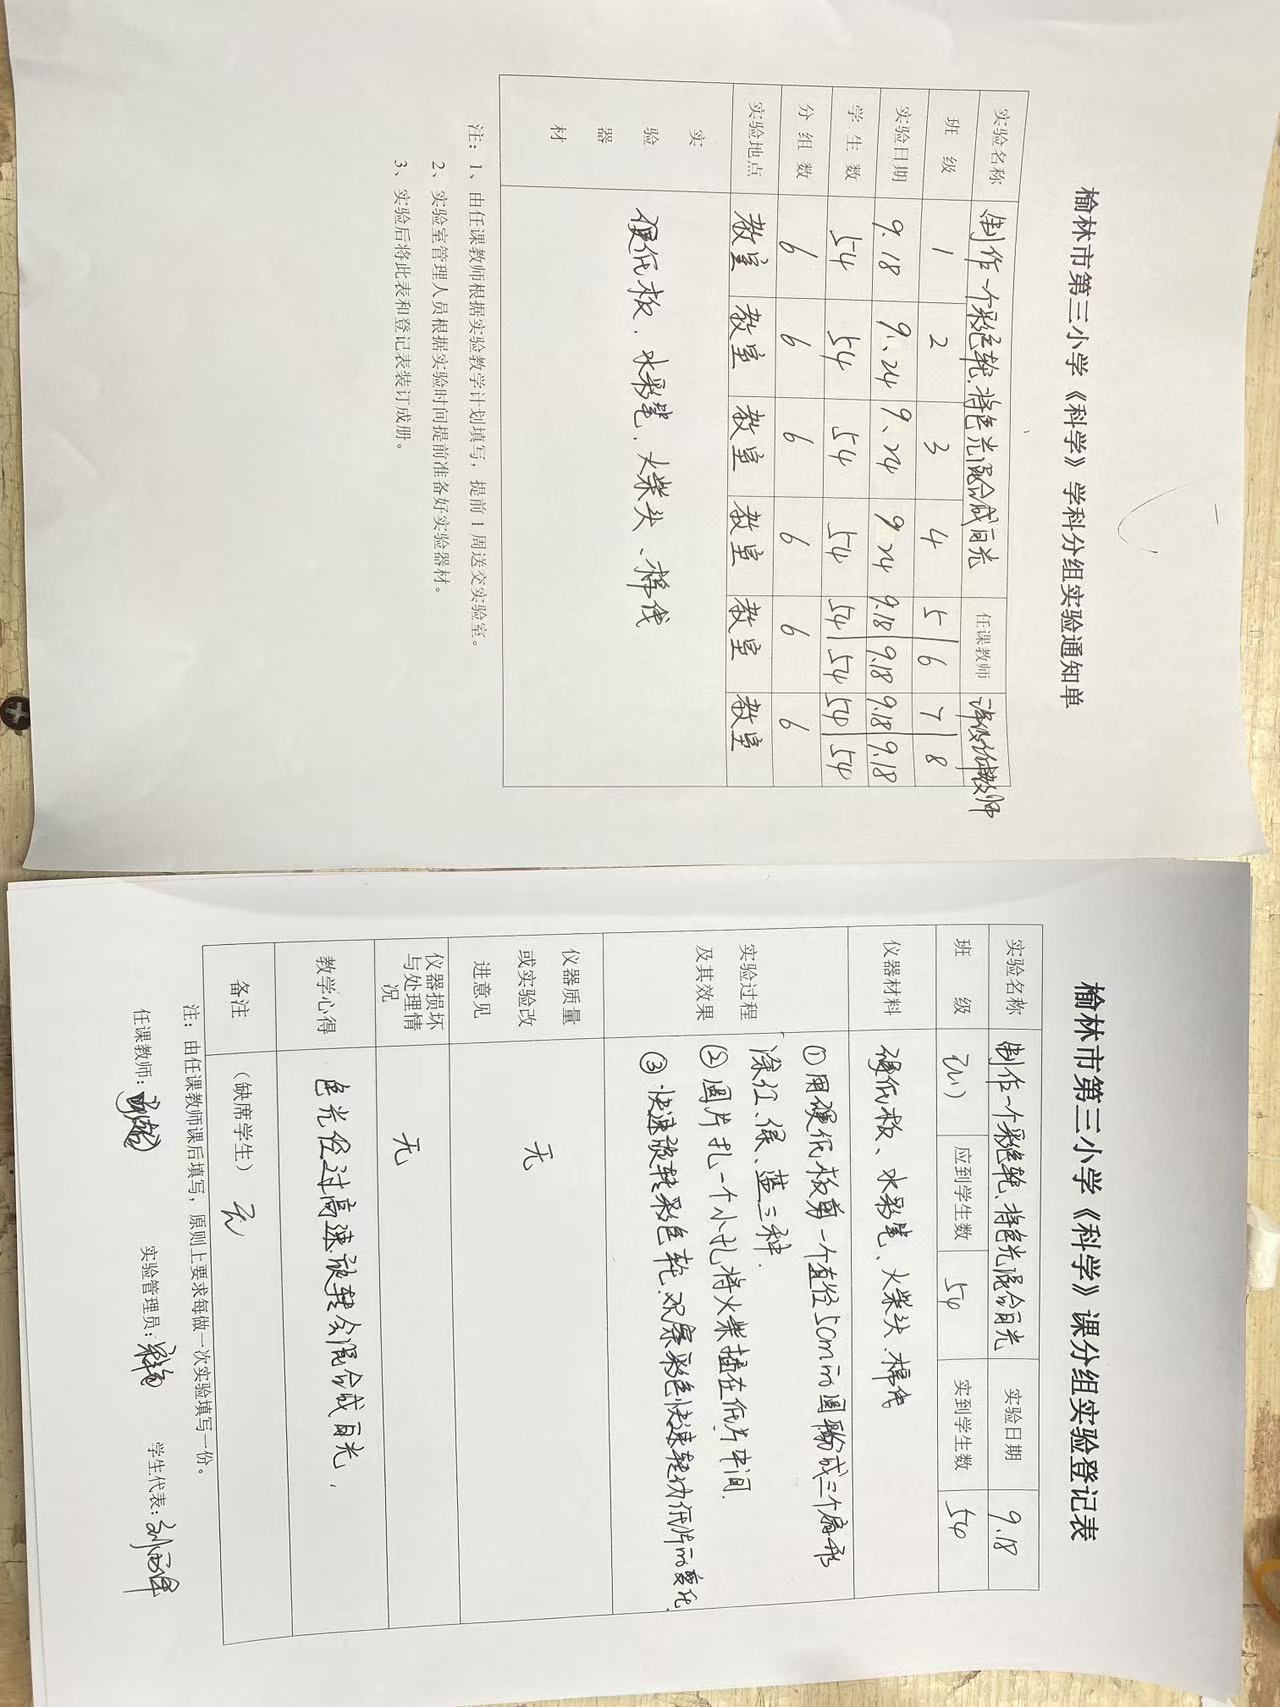 榆林市第三小学《科学》学科分组实验通知单
实验名称 制作一个彩色轮、将色光混合成白光 任课教师
班 级 1 2 3 4 5 6 7 8
实验日期 9.18 9.24 9.24 9.24 9.18 9.18 9.18 9.18
学 生 数 54 54 54 54 54 54 54 54
分 组 数 6 6 6 6 6 6
实验地点 教室 教室 教室 教室 教室 教室
实 验 器 材 硬纸板、水彩笔、火柴头、棉线
注：1、由任课教师根据实验教学计划填写，提前 1 周送交实验室。
2、实验室管理人员根据实验时间提前准备好实验器材。
3、实验后将此表和登记表装订成册。
榆林市第三小学《科学》课分组实验登记表
实验名称 制作一个彩色轮、将色光混合白光 实验日期 9.18
班 级 应到学生数 54 实到学生数 54
仪器材料 硬纸板、水彩笔、火柴头、棉线
实验过程及其效果 ①用硬纸板剪一个直径5cm的圆 成三个扇形
涂红、绿、蓝三种.
②圆片扎一个小孔将火柴插在纸片中间.
③快速旋转彩色轮.观察彩色快速转动纸片的变化.
仪器质量或实验改进意见 无
仪器损坏与处理情况 无
教学心得 色光经过高速旋转会混合成白光.
备注 （缺席学生） 无
注：由任课教师课后填写，原则上要求每做一次实验填写一份。
任课教师： 实验管理员： 学生代表：